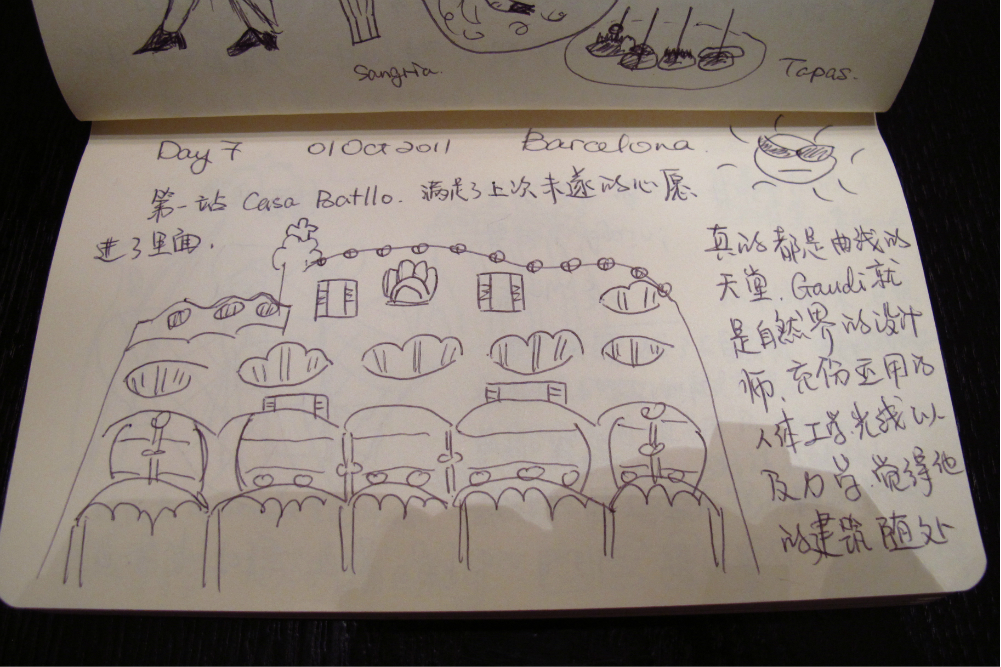 Sangria.
Tapas.
Day 7 01 Oct 2011 Barcelona.
第一站 Casa Batllo. 满足了上次未遂的心愿
进了里面.
真的都是曲线的
天堂. Gaudi就
是自然界的设计
师. 充份运用的
人体工学光线以
及力学 觉得他
的建筑随处